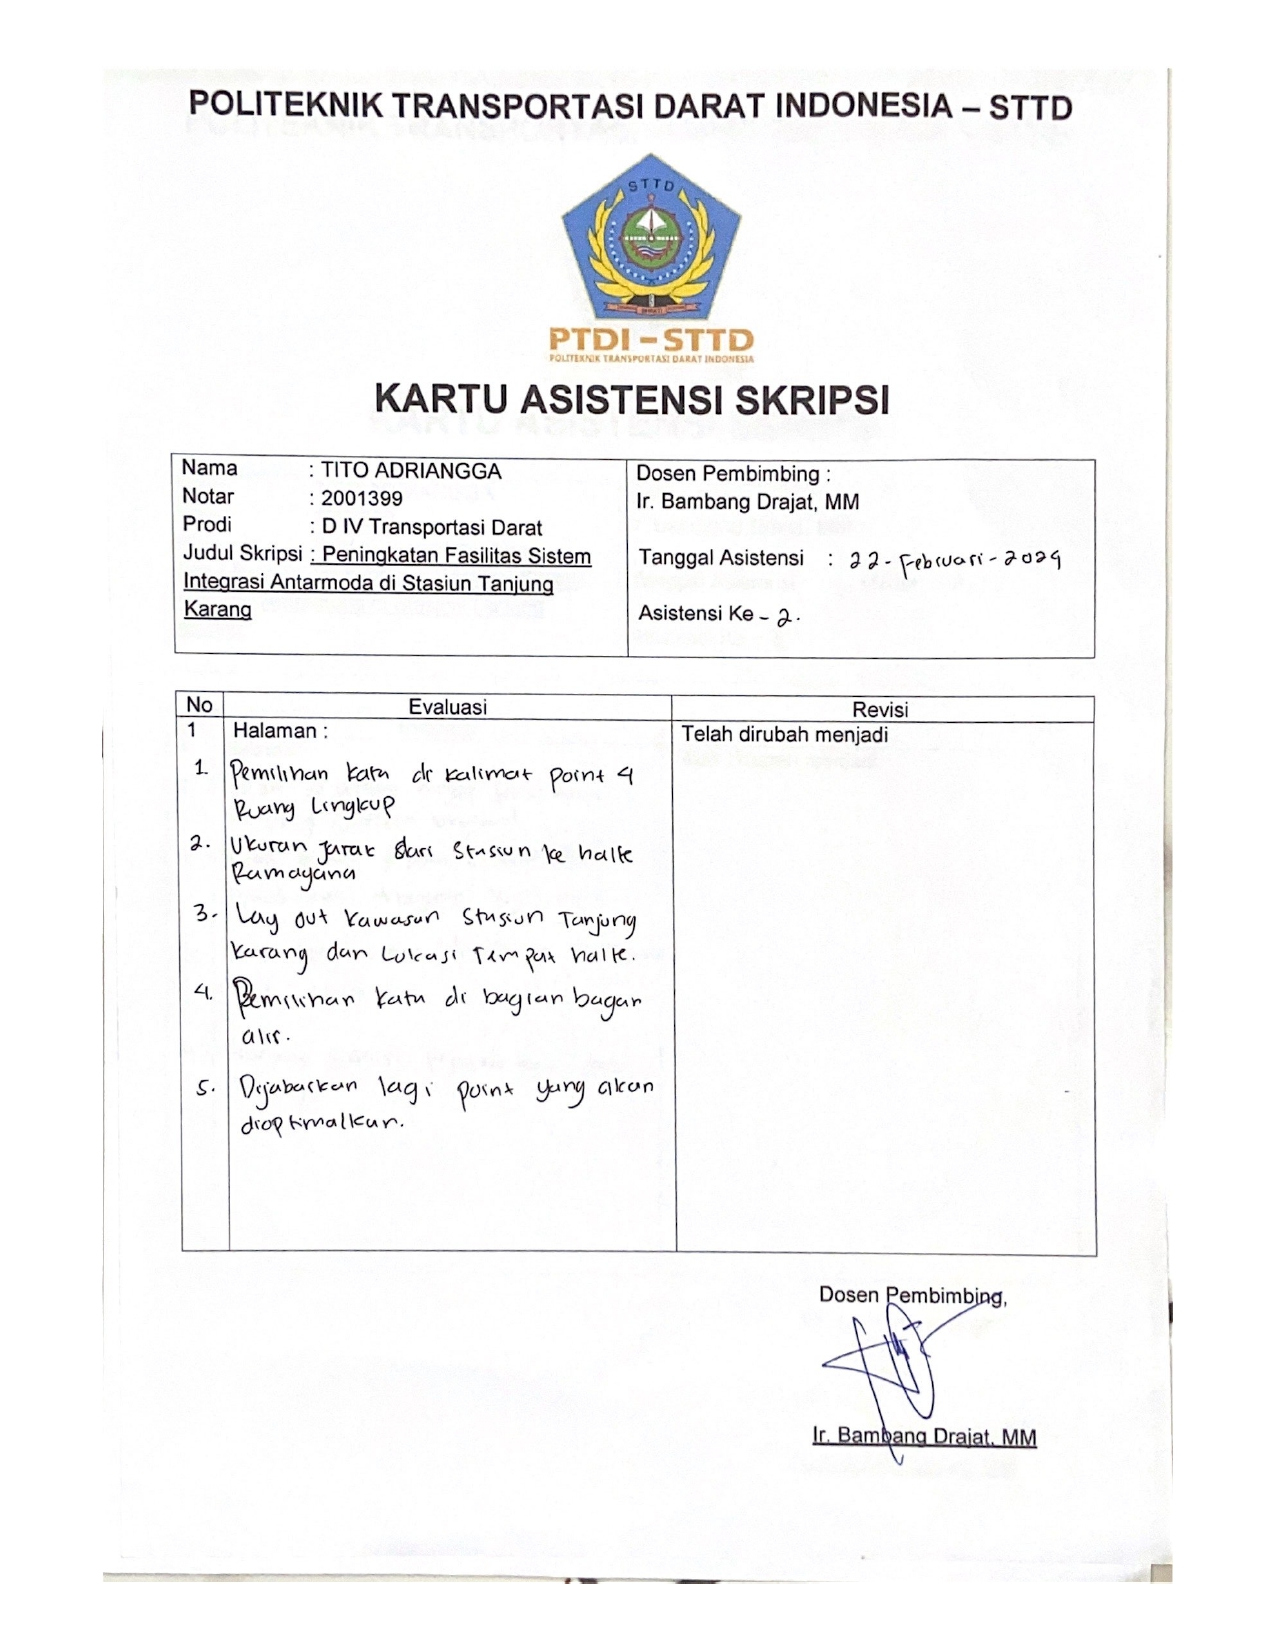 POLITEKNIK TRANSPORTASI DARAT INDONESIA – STTD
STTD
PTDI – STTD
POLITEKNIK TRANSPORTASI DARAT INDONESIA
KARTU ASISTENSI SKRIPSI
Nama : TITO ADRIANGGA
Notar : 2001399
Prodi : D IV Transportasi Darat
Judul Skripsi : Peningkatan Fasilitas Sistem
Integrasi Antarmoda di Stasiun Tanjung
Karang
Dosen Pembimbing :
Ir. Bambang Drajat, MM
Tanggal Asistensi : 22-Februari-2024
Asistensi Ke – 2.
No Evaluasi Revisi
1 Halaman : Telah dirubah menjadi
1. Pemilihan kata di kalimat point 4
Ruang Lingkup
2. Ukuran Jarak dari Stasiun ke halte
Ramayana
3. Lay out Kawasan Stasiun Tanjung
Karang dan Lokasi Tempat halte.
4. Pemilihan kata di bagian bagan
alir.
5. Dijabarkan lagi point yang akan
dioptimalkan.
Dosen Pembimbing,
Ir. Bambang Drajat, MM